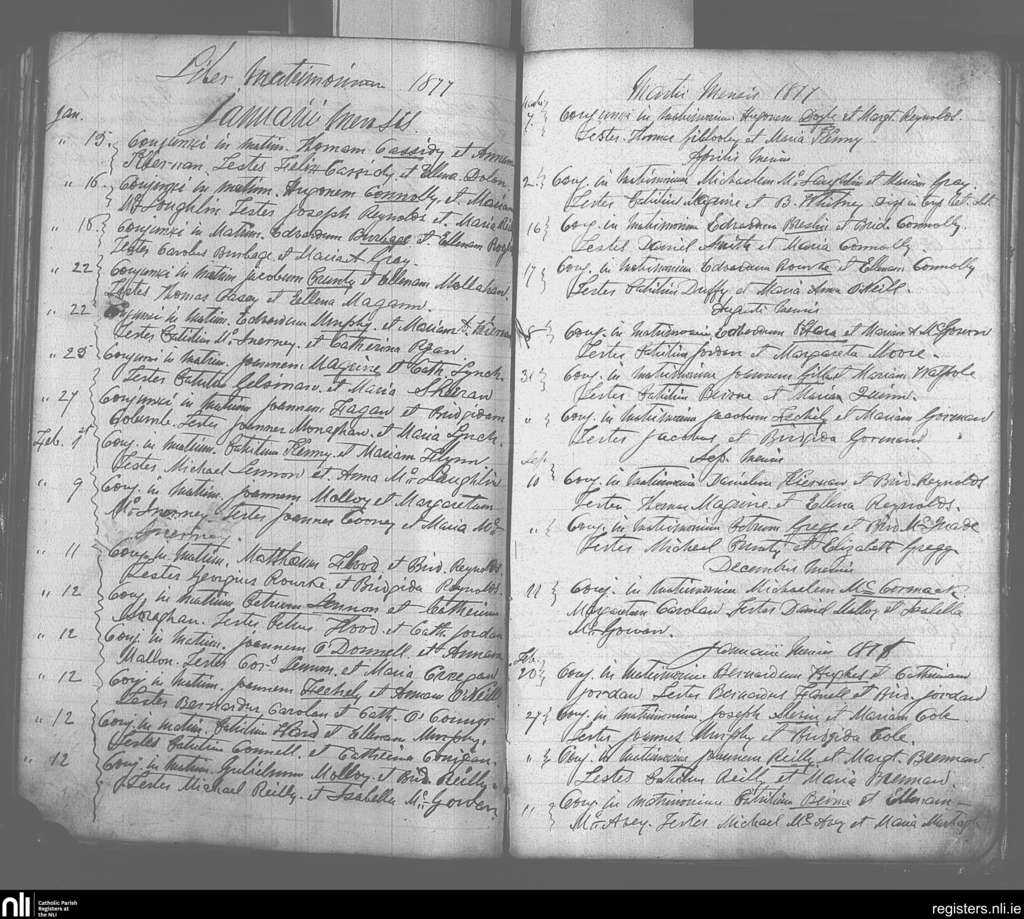 Liber Matrimonium 1877
Januarii Mensis
Jan.
" 15. Conjunxi in Matrim. Thomam Cassidy et Annam
Kiernan. Testes Felix Cassidy et Ellena Dolan.
" 16. Conjunxi in Matrim. Hugonem Connolly et Mariam
McLoughlin Testes Joseph Reynolds et Maria
" 16. Conjunxi in Matrim. Edvardum Burbage et Ellenam
Testes Carolus Burbage et Maria A Gray.
" 22 Conjunxi in Matrim Jacobum et Ellenam Mollahan.
Testes Thomas Casey et Ellena Magann.
" 22 in Matrim. Edvardum Murphy et Mariam A. Kiernan
Testes Patritiu McInerney. et Catherina Egan.
" 25 Conjunxi in Matrim Joannem Maguire et Cath. Lynch.
Testes Patritiu et Maria Sheeran
" 27 Conjunxi in Matrim Joannem Fagan et Bridgidam
Columb. Testes Joannes Monaghan. et Maria Lynch.
Feb. 1st Conj. in Matrim. Patritium Kenny et Mariam Flynn
Testes Michael Lennon et Anna McLaughlin
" 9 Conj. in Matrim. Joannem Molloy et Margaretam
McInerney Testes Joannes Cooney et Maria Mc
Inerney
" 11 Conj. in Matrim. Matthaeum Flood et Brid. Reynolds
Testes Georgius Rourke et Bridgida Reynolds.
" 12 Conj. in Matrim Petrum Lennon et Catherina
Testes Petrus Flood et Cath. Jordan
" 12 Conj. in Matrim. Joannem O'Donnell et Annam
Mallon. Testes Lennon. et Maria
" 12 Conj. in Matrim. Joannem Feehely et Annam O'Neill
Testes Bernardus Carolan et Cath.
" 12 Conj. in Matrim. Patritium Hard et Ellenam Murphy.
Testes Patritiu Connell. et Catherina Corrigan.
" 12 Conj. in Matrim. Gulielmum Molloy. et Brid. Reilly.
Testes Michael Reilly. et Isabella McGowan
Martii Mensis 1877
Martii
7. Conjunxi in Matrimonium Hugonem Doyle et Margt. Reynolds.
Testes. Thomas Gillooly et Maria Kenny
Aprilis Mensis
2 Conj. in Matrimonium Michaelem McLaughlin et Mariam Gray.
Testes Patritiu Maguire et B. Whitney
16 Conj. in Matrimonium Edvardum et Brid Connolly.
Testes Daniel Smith et Maria Connolly
17 Conj. in Matrimonium Edvardum Rourke et Ellenam Connolly
Testes Patritiu Duffy et Maria Anna O'Neill.
Augusti Mensis
8 Conj. in Matrimonium O'Hara et Mariam A McGowan
Testes Patritiu Jordan et Margareta Moore.
31 Conj. in Matrimonium Joannem et Mariam Walpole
Testes Patritiu Beirne et Mariam Quinn.
" Conj. in Matrimonium Jacobum et Mariam Gorman
Testes Jacobus et Bridgida Gorman
Sep. Mensis
Sep.
10 Conj. in Matrimonium Danielem Kiernan et Brid. Reynolds
Testes Thomas Maguire et Ellena Reynolds.
" Conj. in Matrimonium Gregg et Brid McQuade
Testes Michael et Elizabeth Gregg
Decembris Mensis
11 Conj. in Matrimonium Michaelem McCormack
Margaretam Carolan Testes David Molloy et Isabella
McGowan.
Januarii Mensis 1878
Feb.
20 Conj. in Matrimonium Bernardum Hughes et Catherinam
Jordan Testes Bernardus Farrell et Brid. Jordan
27 Conj. in Matrimonium Joseph et Mariam Cole
Testes Joannes Murphy et Bridgida Cole.
" Conj. in Matrimonium Joannem Reilly et Margt. Brennan
Testes Patritiu Reilly et Maria Brennan.
" Conj. in Matrimonium Patritium Beirne et Ellenam
McAvey. Testes Michael McAvey et Maria Murtagh
nli
Catholic Parish
Registers at
the NLI
registers.nli.ie